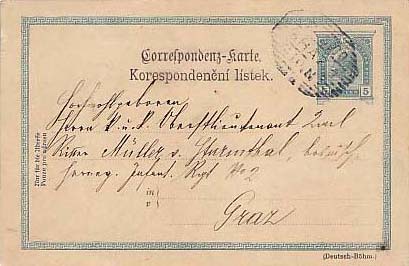 Correspondenz-Karte.
Korespondenční lístek.
Hochwohlgeboren
Herrn k. u. k. Oberstlieutenant Carl
Ritter Müller v. Sturmthal, bosnisch
herzeg. Infant. Rgt No 2
Nur für die Adresse
Pouze pro adresu
in
v
Graz
5
(Deutsch-Böhm.)